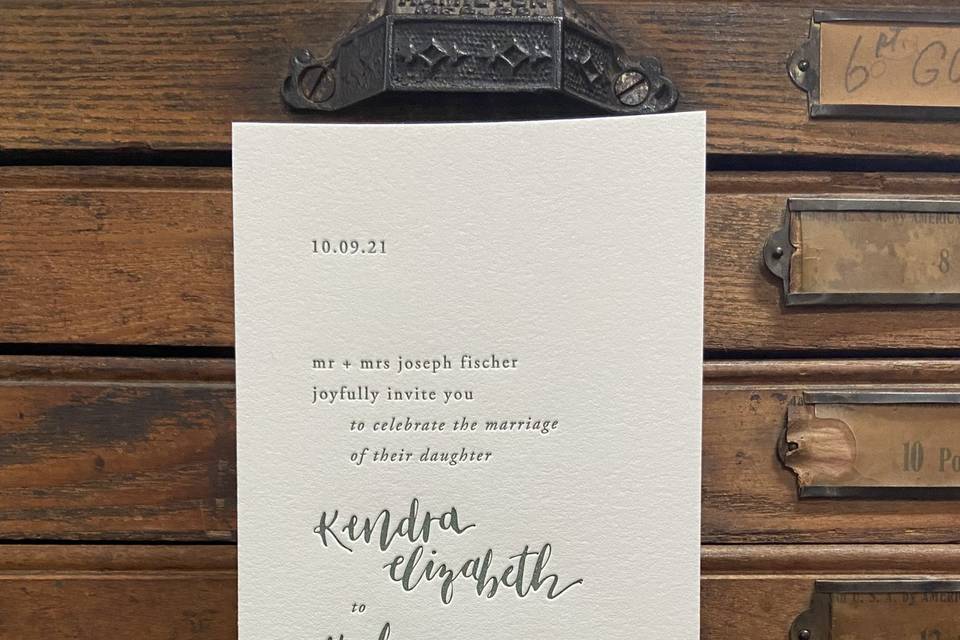 10.09.21
mr + mrs joseph fischer
joyfully invite you
to celebrate the marriage
of their daughter
Kendra
elizabeth
to
6 PT. GO
U. S. A. by AMERIC
8
10 Po
U. S. A. by AMERI